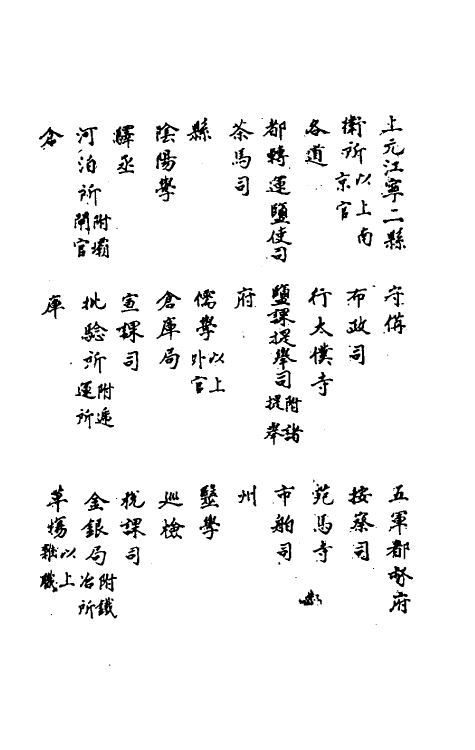 上元江寧二縣　守備　五軍都督府
衛所以上南京官　布政司　按察司
各道　行太僕寺　苑馬寺
都轉運鹽使司　鹽課提舉司附諸提舉　市舶司
茶馬司　府　州
縣　儒學以上外官　醫學
陰陽學　倉庫局　巡檢
驛丞　宣課司　稅課司
河泊所附壩閘官　批驗所附遞運所　金銀局附鐵冶所
倉　庫　草場以上雜職